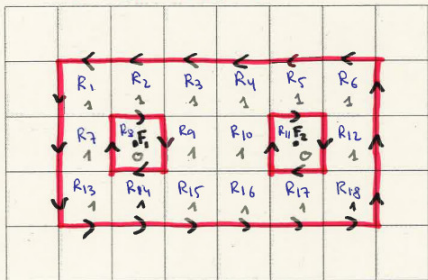 R1 R2 R3 R4 R5 R6
1 1 1 1 1 1
R7 R8 F1 R9 R10 R11 F2 R12
1 0 1 1 0 1
R13 R14 R15 R16 R17 R18
1 1 1 1 1 1